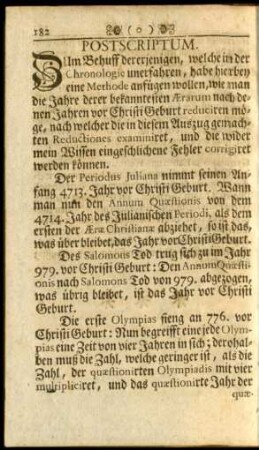 182 ( o )
POSTSCRIPTUM.
Zum Behuff dererjenigen, welche in der
Chronologie unerfahren, habe hierbey
eine Methode anfügen wollen, wie man
die Jahre derer bekanntesten Ærarum nach de-
nen Jahren vor Christi Geburt reduciren mö-
ge, nach welcher die in diesem Auszug gemach-
ten Reductiones examiniret, und die wider
mein Wissen eingeschlichene Fehler corrigiret
werden können.
Der Periodus Juliana nimmt seinen An-
fang 4713. Jahr vor Christi Geburt. Wann
man nun den Annum Quæstionis von dem
4714. Jahr des Julianischen Periodi, als dem
ersten der Æræ Christianæ abziehet, so ist das,
was über bleibet, das Jahr vor Christi Geburt.
Des Salomons Tod trug sich zu im Jahr
979. vor Christi Geburt: Den Annum Quæsti-
onis nach Salomons Tod von 979. abgezogen,
was übrig bleibet, ist das Jahr vor Christi
Geburt.
Die erste Olympias fieng an 776. vor
Christi Geburt: Nun begreifft eine jede Olym-
pias eine Zeit von vier Jahren in sich; derohal-
ben muß die Zahl, welche geringer ist, als die
Zahl, der quæstionirten Olympiadis mit vier
multipliciret, und das quæstionirte Jahr der
quæ-